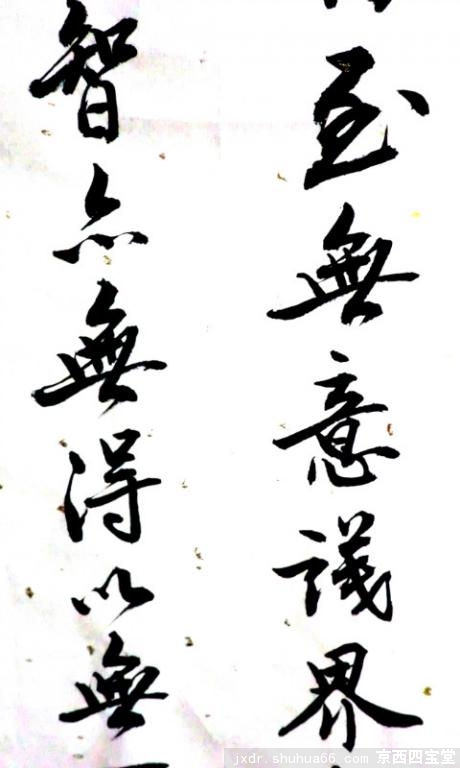 至無意識界
智亦無得以無
jxdr.shuhua66.com 京西四宝堂